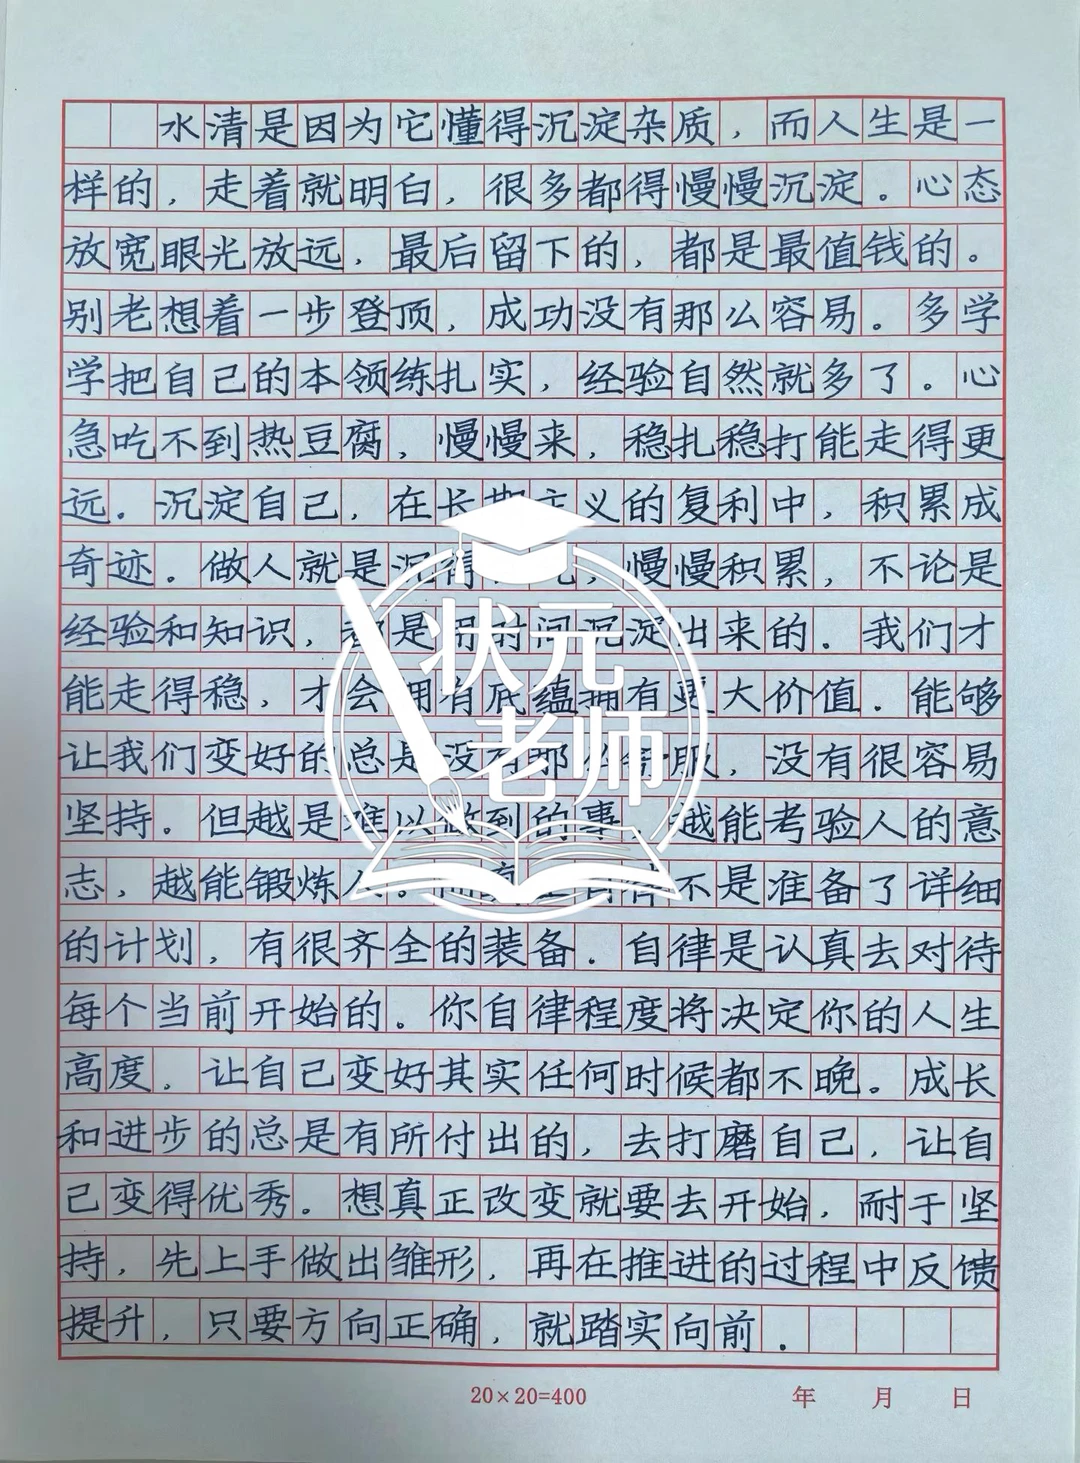 水清是因为它懂得沉淀杂质，而人生是一
样的，走着就明白，很多都得慢慢沉淀。心态
放宽眼光放远，最后留下的，都是最值钱的。
别老想着一步登顶，成功没有那么容易。多学
学把自己的本领练扎实，经验自然就多了。心
急吃不到热豆腐，慢慢来，稳扎稳打能走得更
远。沉淀自己，在长期主义的复利中，积累成
奇迹。做人就是沉得，慢慢积累，不论是
经验和知识，都是用时间沉淀出来的。我们才
能走得稳，才会拥有底蕴拥有更大价值。能够
让我们变好的总是没有那么舒服，没有很容易
坚持。但越是难以做到的事，越能考验人的意
志，越能锻炼人。不是准备了详细
的计划，有很齐全的装备。自律是认真去对待
每个当前开始的。你自律程度将决定你的人生
高度。让自己变好其实任何时候都不晚。成长
和进步的总是有所付出的，去打磨自己，让自
己变得优秀。想真正改变就要去开始，耐于坚
持，先上手做出雏形，再在推进的过程中反馈
提升，只要方向正确，就踏实向前。
状元
老师
20×20=400 年 月 日